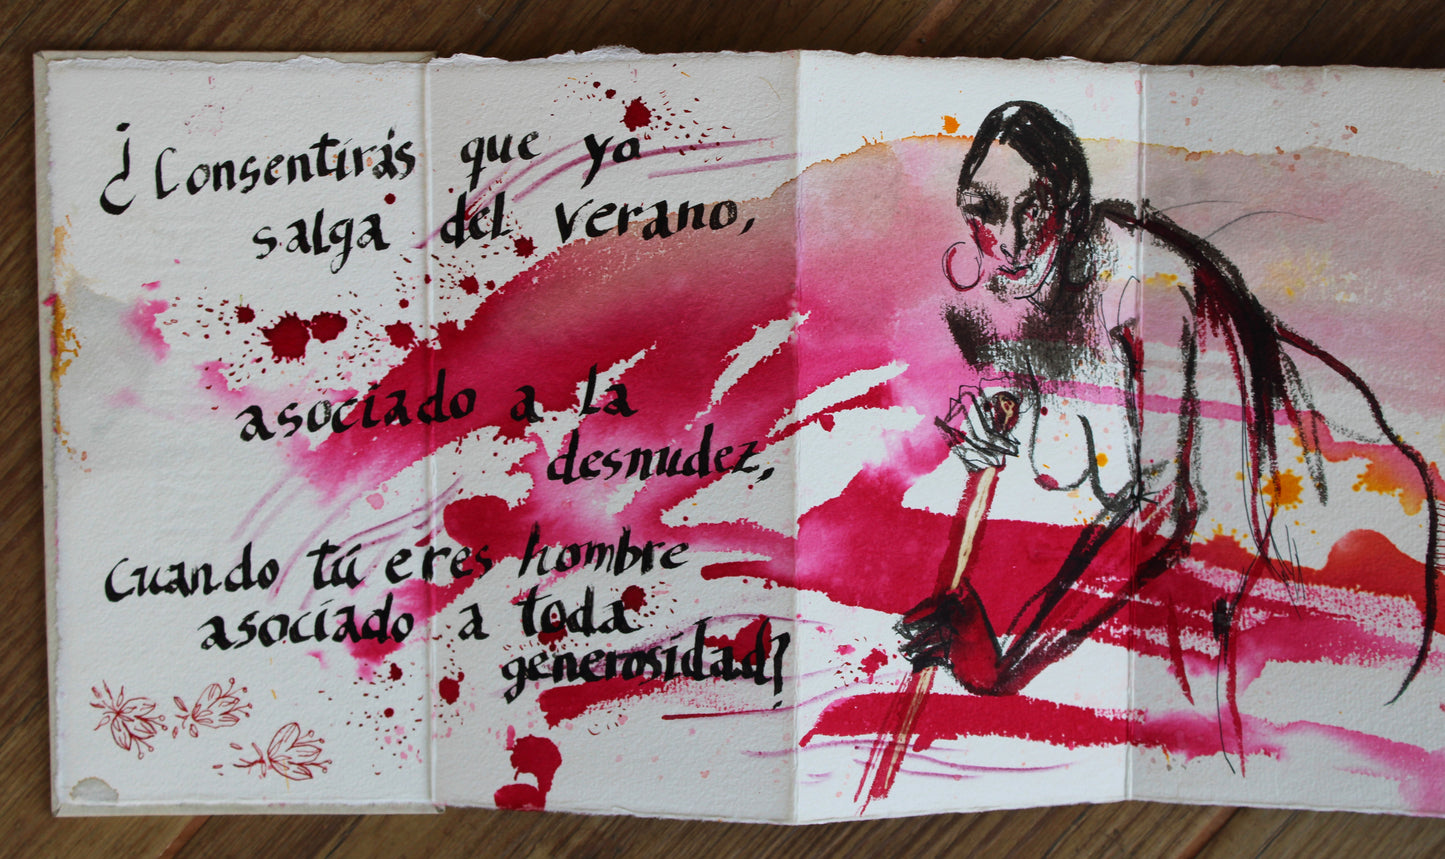 ¿Consentirás que yo
salga del verano,
asociado a la
desnudez,
Cuando tú eres hombre
asociado a toda
generosidad?